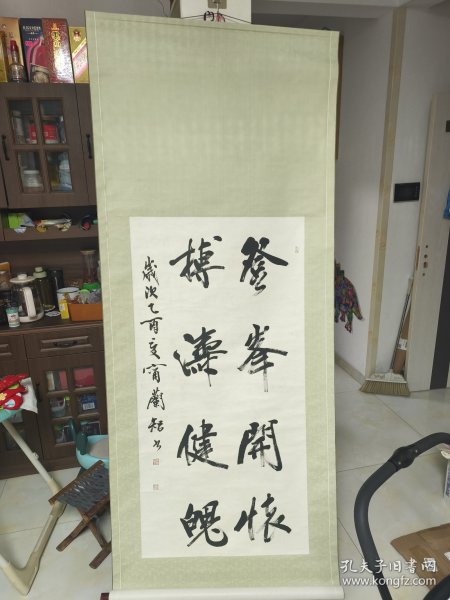 登峯開懷
搏濤健魄
歲次乙酉之夏甯蘭智书
孔夫子旧书网
www.kongfz.com